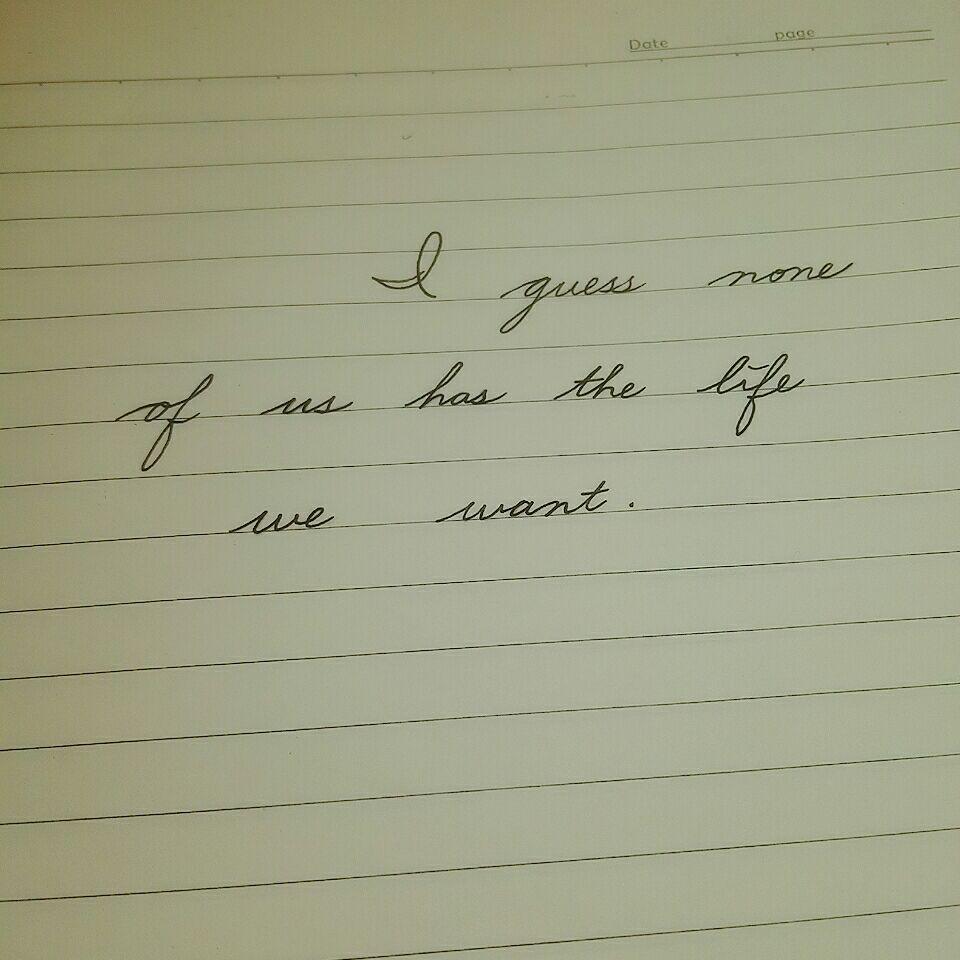 Date page
I guess none
of us has the life
we want.